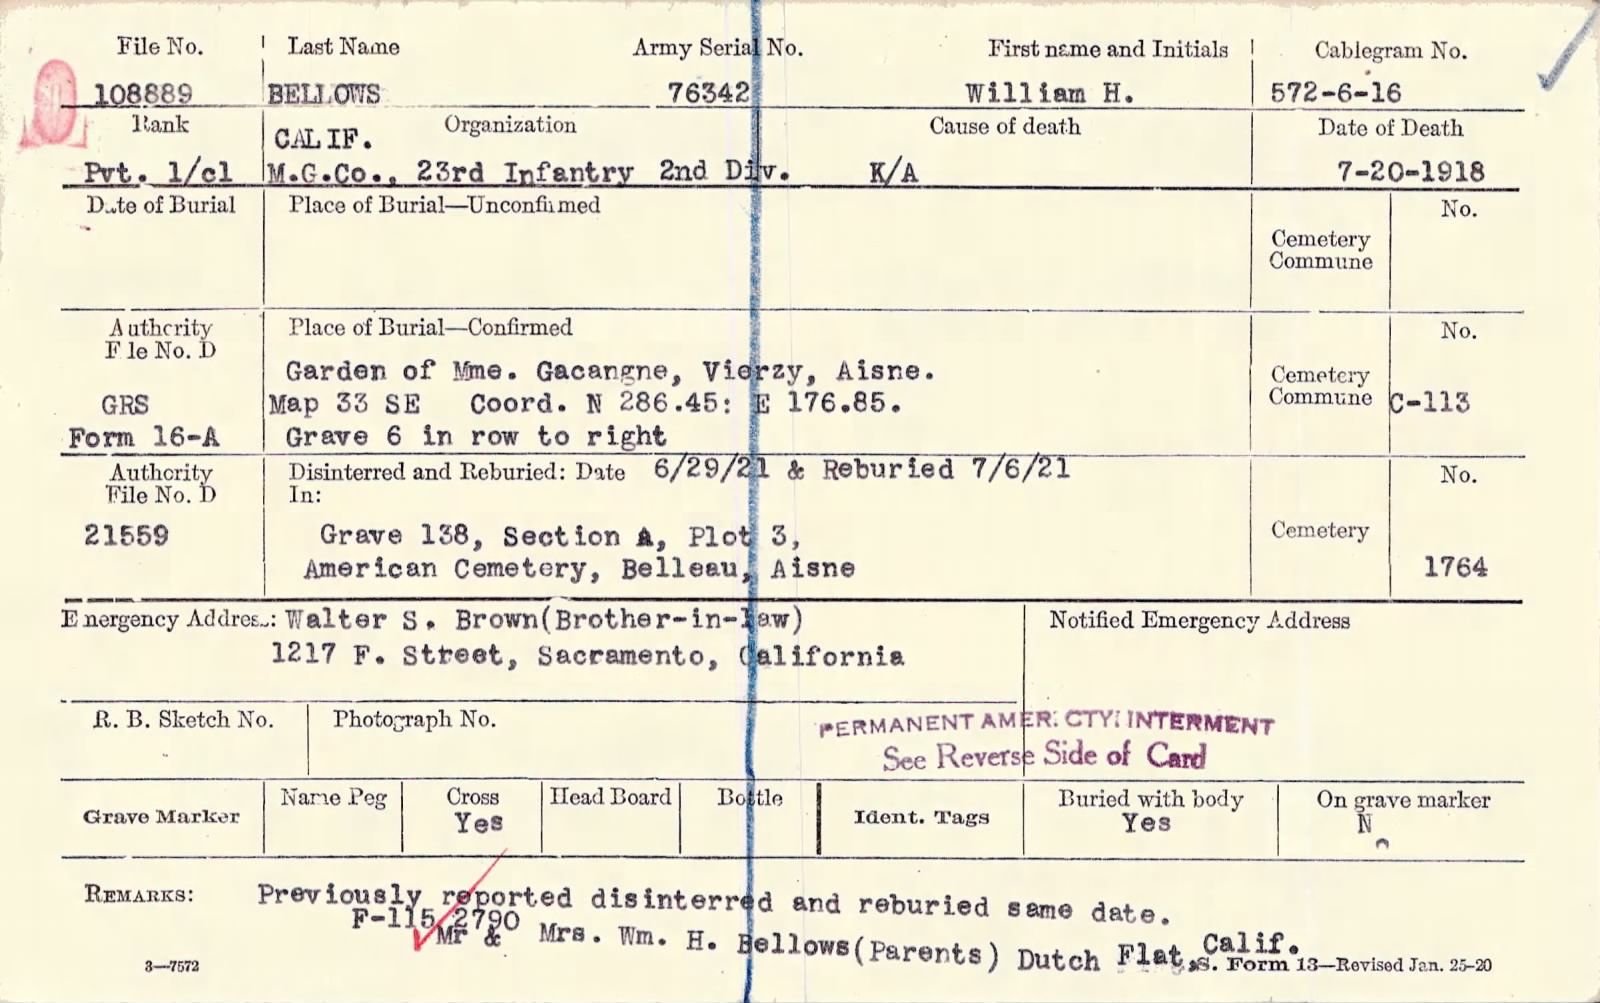 File No. Last Name Army Serial No. First name and Initials Cablegram No.
108889 BELLOWS 76342 William H. 572-6-16
Rank CALIF. Organization Cause of death Date of Death
Pvt. 1/cl M.G.Co., 23rd Infantry 2nd Div. K/A 7-20-1918
Date of Burial Place of Burial—Unconfirmed No.
Cemetery
Commune
Authority Place of Burial—Confirmed No.
File No. D
Garden of Mme. Gacangne, Vierzy, Aisne. Cemetery
GRS Map 33 SE Coord. N 286.45: E 176.85. Commune C-113
Form 16-A Grave 6 in row to right
Authority Disinterred and Reburied: Date 6/29/21 & Reburied 7/6/21 No.
File No. D In:
21559 Grave 138, Section A, Plot 3, Cemetery
American Cemetery, Belleau, Aisne 1764
Emergency Address: Walter S. Brown(Brother-in-law) Notified Emergency Address
1217 F. Street, Sacramento, California
R. B. Sketch No. Photograph No. PERMANENT AMER. CTY. INTERMENT
See Reverse Side of Card
Name Peg Cross Head Board Bottle Buried with body On grave marker
Grave Marker Yes Ident. Tags Yes N
REMARKS: Previously reported disinterred and reburied same date.
F-115 2790
Mr & Mrs. Wm. H. Bellows(Parents) Dutch Flat, Calif.
3—7572 S. Form 13—Revised Jan. 25-20